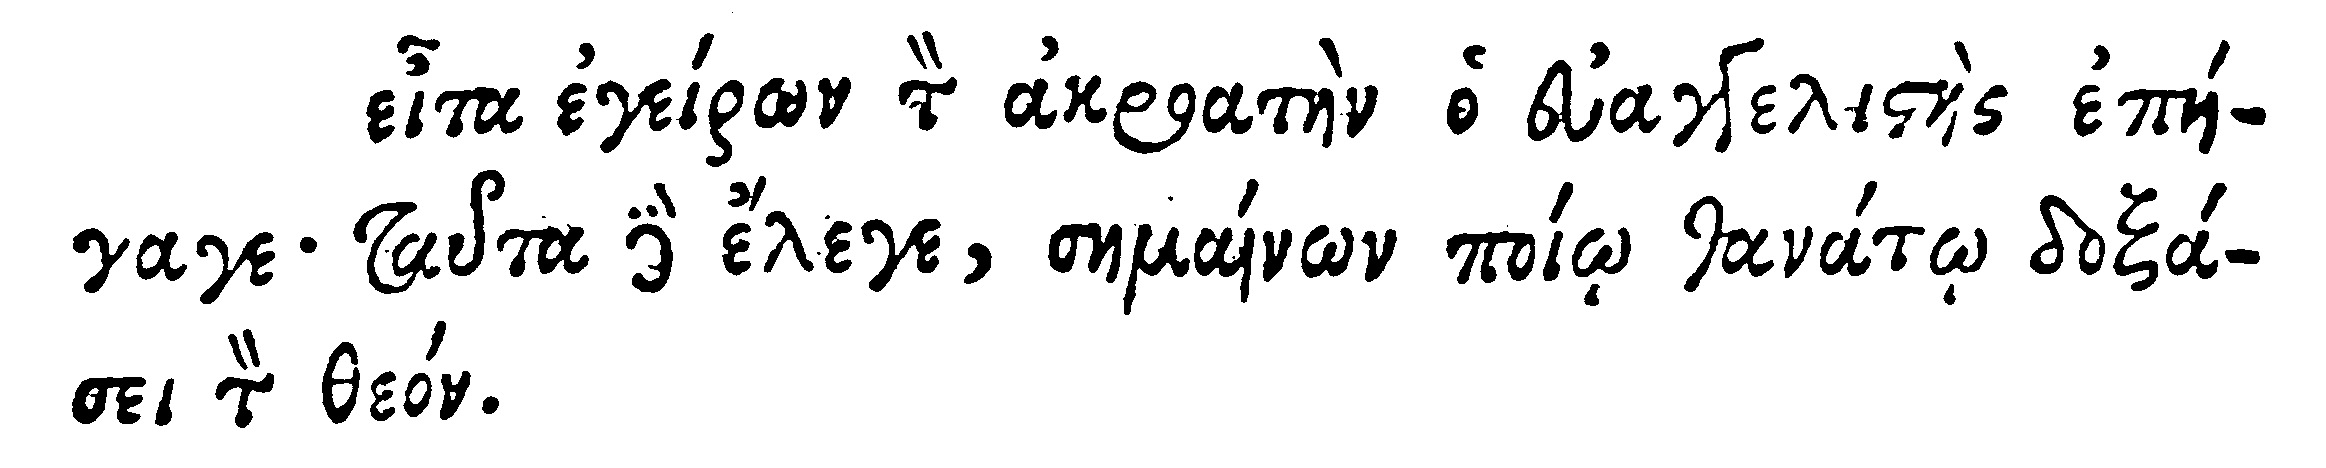 εἶτα ἐγείρων τὸν ἀκροατὴν ὁ εὐαγγελιστὴς ἐπή-
γαγε· ταῦτα δὲ ἔλεγε, σημαίνων ποίῳ θανάτῳ δοξά-
σει τὸν θεόν.